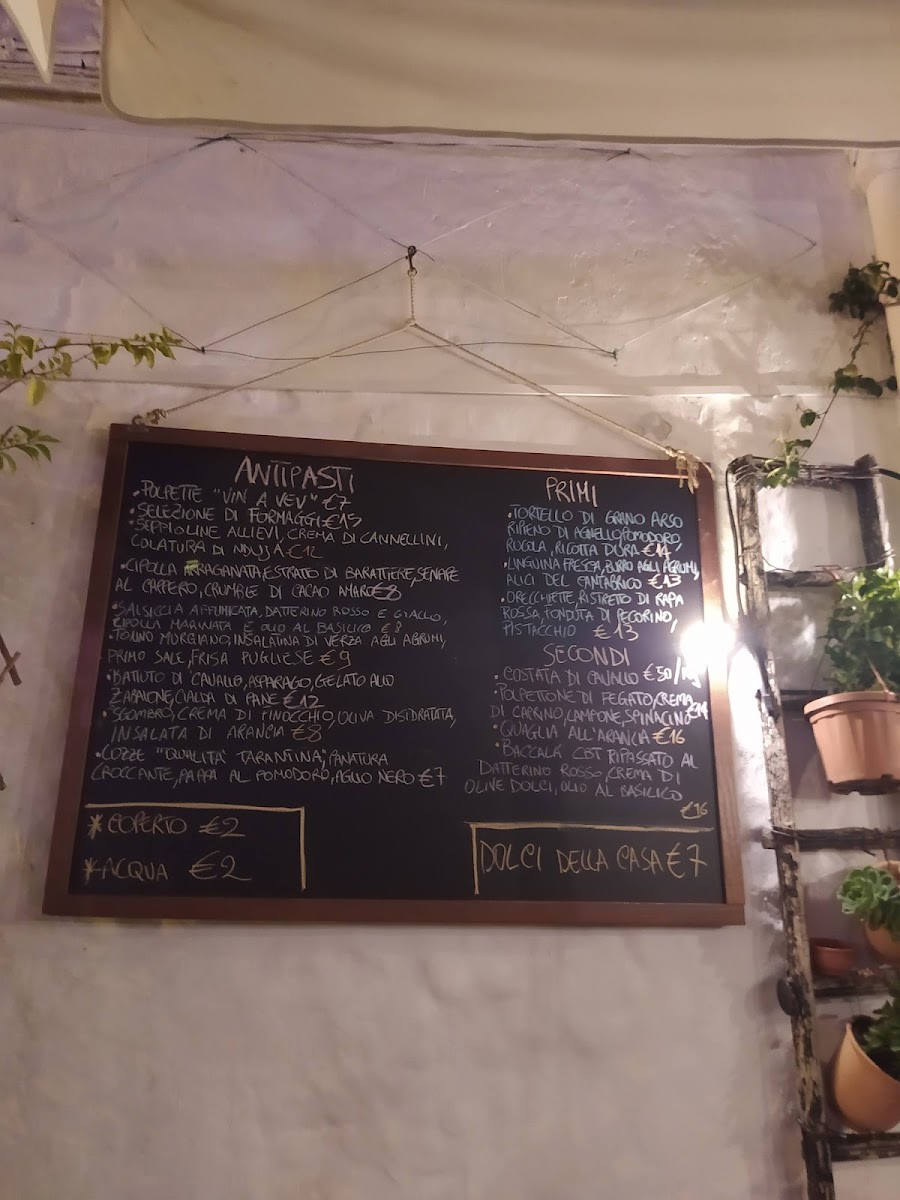 ANTIPASTI
•POLPETTE "VIN A VEV" €7
•SELEZIONE DI FORMAGGI €15
•SEPPIOLINE ALLIEVI, CREMA DI CANNELLINI,
COLATURA DI NDUJA €12
•CIPOLLA ARRAGANATA, ESTRATO DI BARATTIERE, SENAPE
AL CAPPERO, CRUMBLE DI CACAO AMARO €8
•SALSICCIA AFFUMICATA, DATTERINO ROSSO E GIALLO,
CIPOLLA MARINATA E OLIO AL BASILICO €8
•TONNO MURGIANO, INSALATINA DI VERZA AGLI AGRUMI,
PRIMO SALE, FRISA PUGLIESE €9
•BATTUTO DI CAVALLO, ASPARAGO, GELATO ALLO
ZABAIONE, CIALDA DI PANE €12
•SGOMBRO, CREMA DI FINOCCHIO, OLIVA DISIDRATATA,
INSALATA DI ARANCIA €8
•COZZE "QUALITÀ TARANTINA", PANATURA
CROCCANTE, PAPPA AL POMODORO, AGLIO NERO €7
*COPERTO €2
*ACQUA €2
PRIMI
•TORTELLO DI GRANO ARSO
RIPIENO DI AGNELLO, POMODORO,
RUCOLA, RICOTTA DURA €14
•LINGUINA FRESCA, BURRO AGLI AGRUMI,
ALICI DEL CANTABRICO €13
•ORECCHIETTE, RISTRETO DI RAPA
ROSSA, FONDUTA DI PECORINO,
PISTACCHIO €13
SECONDI
•COSTATA DI CAVALLO €50/Kg
•POLPETTONE DI FEGATO, CREMA
DI CAPRINO, LAMPONE, SPINACINO €14
•QUAGLIA ALL'ARANCIA €16
•BACCALÀ CBT RIPASSATO AL
DATTERINO ROSSO, CREMA DI
OLIVE DOLCI, OLIO AL BASILICO
€16
DOLCI DELLA CASA €7